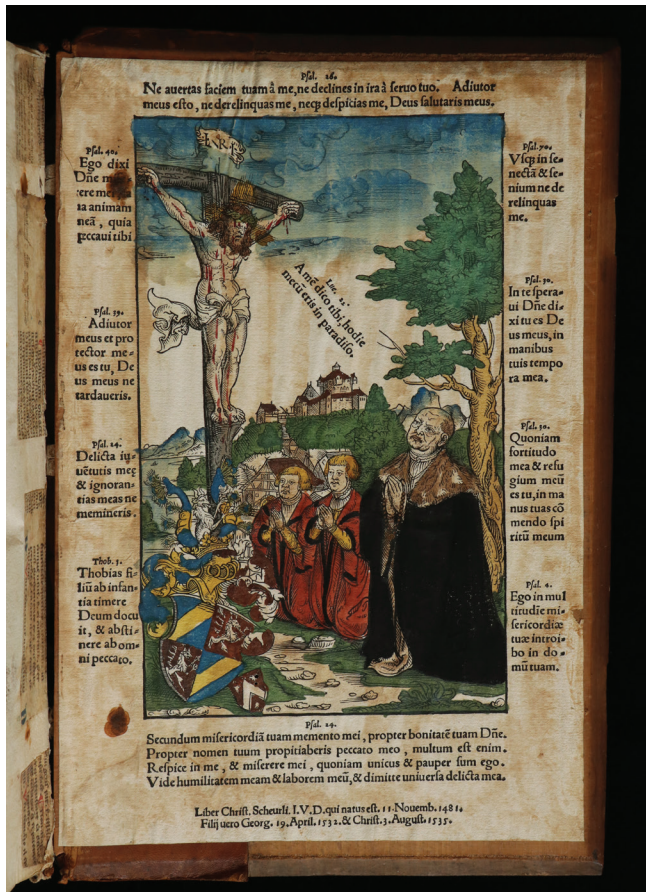 Psal. 26.
Ne auertas faciem tuam â me, ne declines in ira à seruo tuo. Adiutor
meus esto, ne derelinquas me, neqꝫ despicias me, Deus salutaris meus.
Psal. 40.
Ego dixi
Dñe
animam
meã, quia
peccaui tibi
Psal. 59.
Adiutor
meus et pro
tector me⸗
us es tu, De
us meus ne
tardaueris.
Psal. 24.
Delicta iu⸗
uẽtutis meę
& ignoran⸗
tias meas ne
memineris.
Thob. 1.
Thobias fi⸗
liũ ab infan⸗
tia timere
Deum docu
it, & absti⸗
nere ab om⸗
ni peccato.
I.N.R.I.
Luc. 23.
A mẽ dico tibi, hodie
mecũ eris in paradiso.
Psal. 70.
Vsqꝫ in se⸗
nectã & se⸗
nium ne de
relinquas
me.
Psal. 30.
In te spera⸗
ui Dñe di⸗
xi tu es De
us meus, in
manibus
tuis tempo
ra mea.
Psal. 30.
Quoniam
fortitudo
mea & refu
gium meũ
es tu, in ma
nus tuas cõ
mendo spi
ritũ meum
Psal. 4.
Ego in mul
titudie mi⸗
sericordiæ
tuæ introi⸗
bo in do⸗
mũ tuam.
Psal. 24.
Secundum misericordiã tuam memento mei, propter bonitatẽ tuam Dñe.
Propter nomen tuum propitiaberis peccato meo, multum est enim.
Respice in me, & miserere mei, quoniam unicus & pauper sum ego.
Vide humilitatem meam & laborem meũ, & dimitte uniuersa delicta mea.
Liber Christ. Scheurli. I.V.D. qui natus est. 11. Nouemb. 1481.
Filij uero Georg. 19. April. 1532. & Christ. 3. August. 1535.